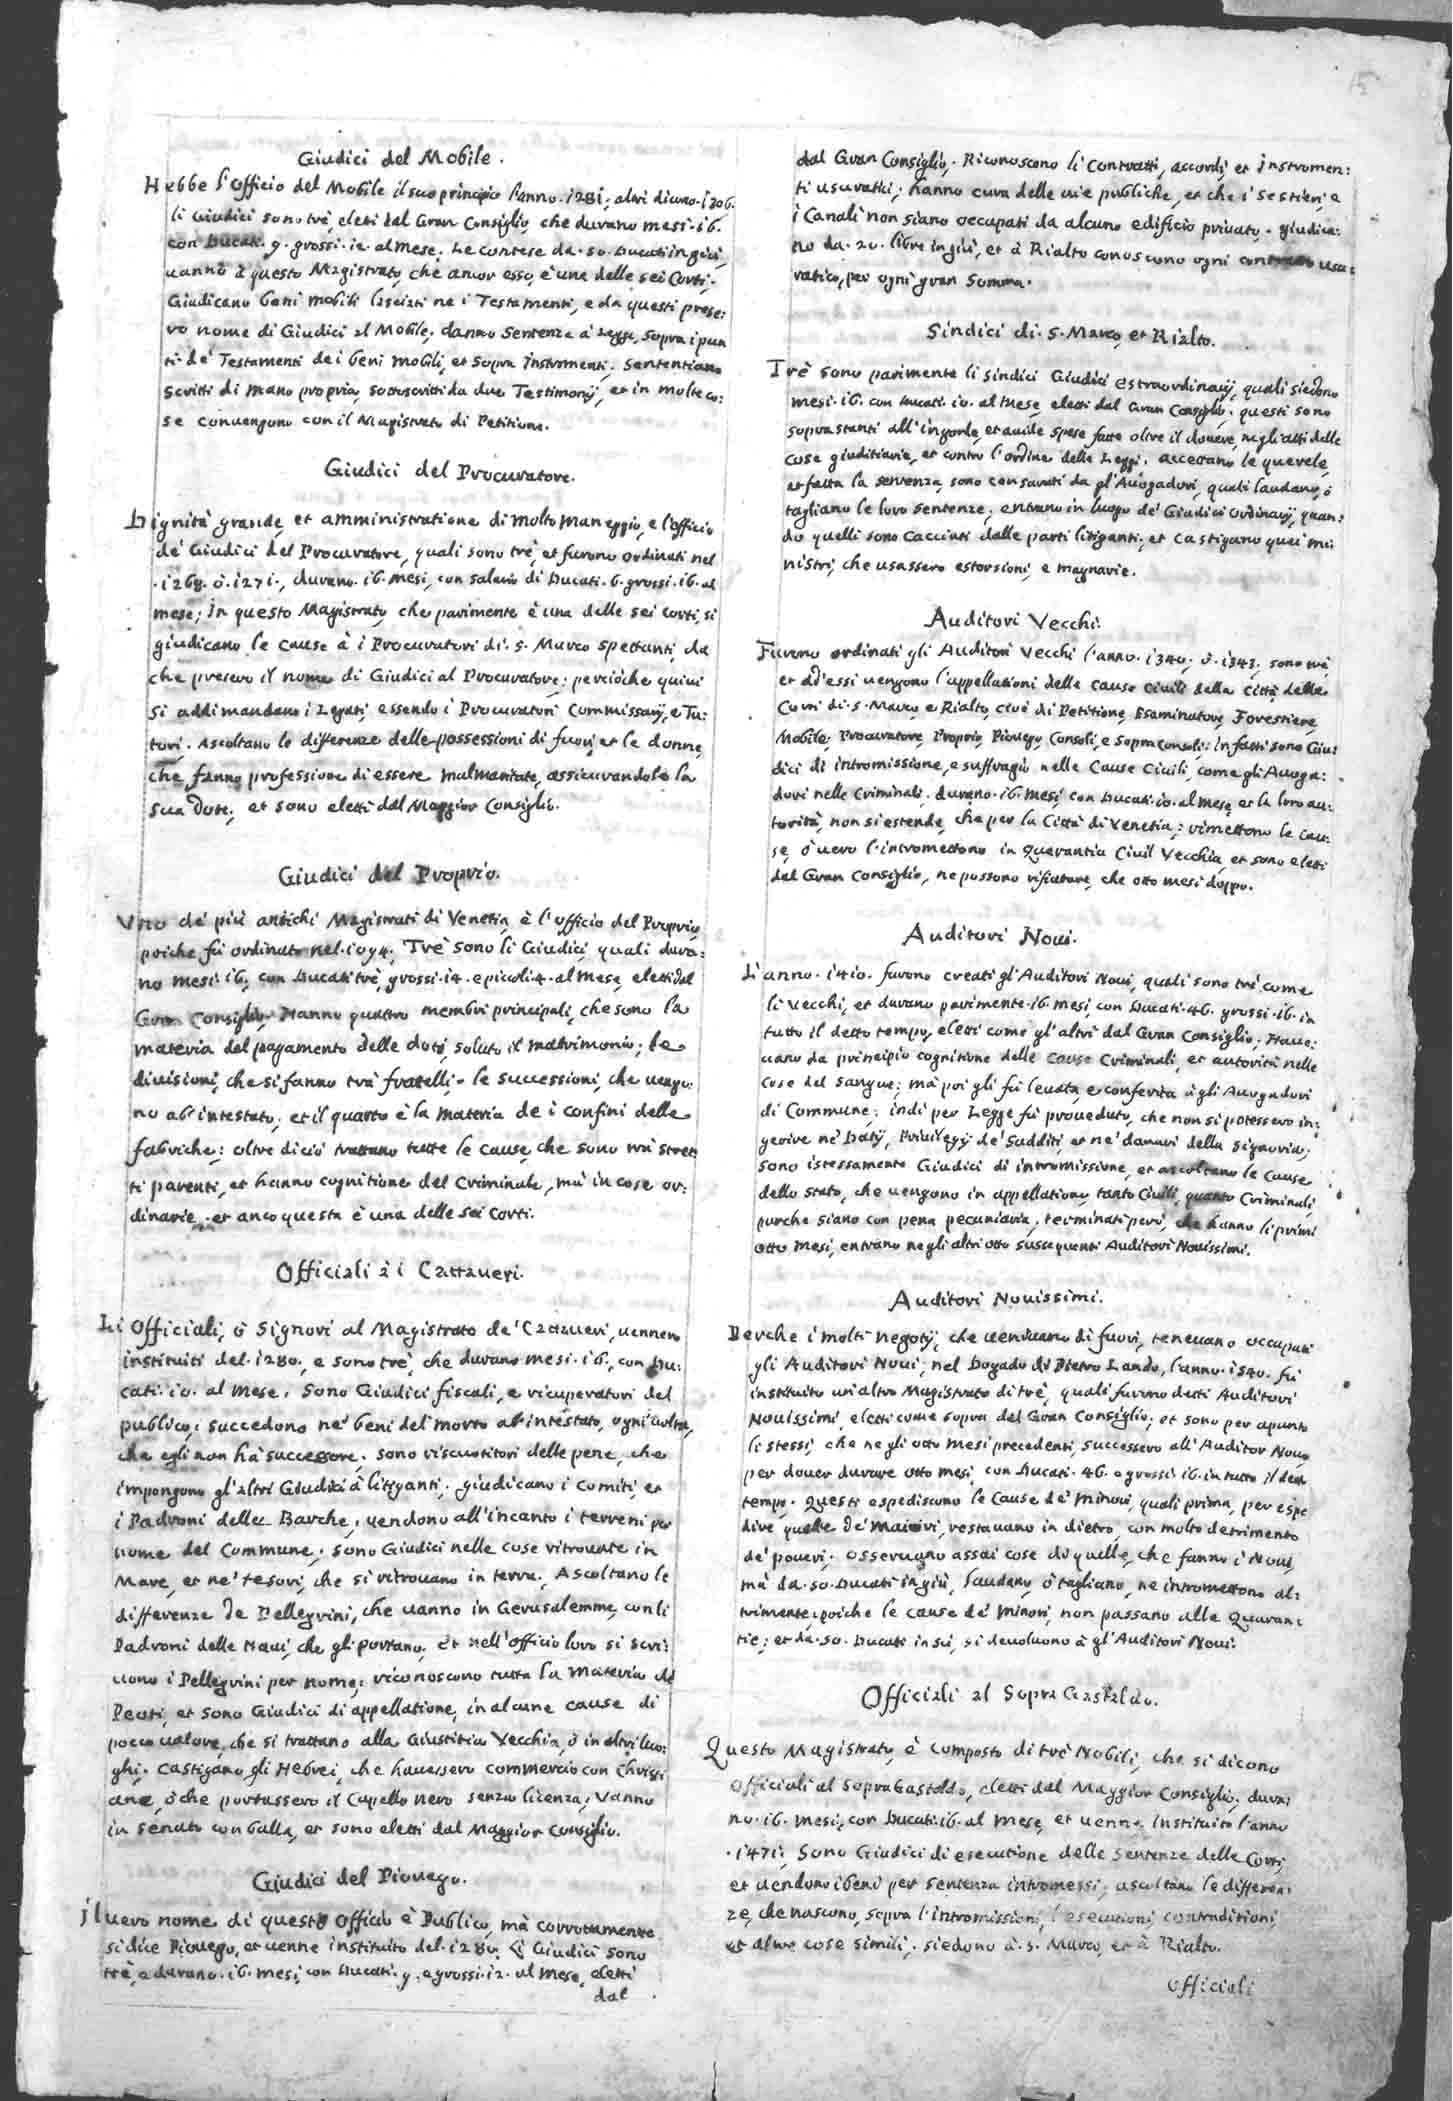 15
Giudici del Mobile.
Hebbe l'Officio del Mobile il suo principio l'anno. 1281; altri dicono. 1306.
li Giudici sono trè, eletti dal Gran Consiglio, che durano mesi. 16.
con Ducati. 9. grossi. 12. al mese. Le contese da. 50. Ducati in giù,
uanno à questo Magistrato, che ancor esso, è una delle sei Corti.
Giudicano beni mobili lasciati ne i Testamenti, e da questi prese:
ro nome di Giudici al Mobile; danno Sentenze à Legge, sopra i pun
ti de' Testamenti de i beni mobili, et sopra Instromenti. Sententiano
Scritti di mano propria, sottoscritti da due Testimonij, et in molte co:
se conuengono con il Magistrato di Petitione.
Giudici del Procuratore.
Dignità grande, et amministratione di molto maneggio, e l'officio
de' Giudici del Procuratore, quali sono trè, et furono ordinati nel
. 1268. ò. 1271., durano. 16. mesi, con salario di Ducati. 6. grossi. 16. al
mese; In questo Magistrato, che parimente è una delle sei corti, si
giudicano le cause à i Procuratori di. S. Marco spettanti, da
che presero il nome di Giudici al Procuratore; perciòche quiui
si addimandano i Legati, essendo i Procuratori Commissarij, e Tu:
tori. Ascoltano le differenze delle possessioni di fuori, et le donne,
che fanno professione di essere malmaritate, assicurandole la
sua Dote, et sono eletti dal Maggior Consiglio.
Giudici del Proprio.
Uno de' più antichi Magistrati di Venetia, è l'officio del Proprio,
poiche fù ordinato nel. 1094. Trè sono li Giudici, quali dura:
no mesi. 16; con Ducati trè, grossi. 14. e picoli. 4. al mese, eletti dal
Gran Consiglio, Hanno quattro membri principali, che sono la
materia del pagamento delle doti, soluto il matrimonio; le
diuisioni, che si fanno trà fratelli, le successioni, che uengo:
no ab' intestato; et il quarto è la materia de i confini delle
fabriche: oltre di ciò trattano tutte le cause, che sono trà stret
ti parenti, et hanno cognitione del Criminale, mà in cose or:
dinarie, et anco questa è una delle sei Corti.
Officiali à i Cattaueri.
Li Officiali, ò Signori al Magistrato de' Cattaueri, uennero
instituiti del. 1280., e sono trè, che durano mesi. 16., con Du:
cati. 10. al mese. Sono Giudici fiscali, e ricuperatori del
publico; succedono ne' beni del morto ab' intestato, ogni uolta,
che egli non hà successore; sono riscuotitori delle pene, che
impongono gl'altri Giudici à litiganti; giudicano i Comiti, et
i Padroni delle Barche; uendono all'incanto i terreni per
nome del Commune; sono Giudici nelle cose ritrouate in
Mare, et ne' tesori, che si ritrouano in terra; Ascoltano le
differenze de Pellegrini, che uanno in Gerusalemme, con li
Padroni delle Naui, che gli portano. et nell'officio loro si scri:
uono i Pellegrini per nome; riconoscono tutta la materia de
Peoti, et sono Giudici di appellatione, in alcune cause di
poco ualore, che si trattano alla Giustitia Vecchia, ò in altri luo:
ghi. Castigano gli Hebrei, che hauessero commercio con Christi
ane, ò che portassero il Capello nero senza licenza; Vanno
in Senato con balla, et sono eletti dal Maggior Consiglio.
Giudici del Piouego.
Il uero nome di questo Officio è Publico, mà corrottamente
si dice Piouego, et uenne instituito del. 1280. Li Giudici sono
trè, e durano. 16. mesi, con Ducati. 9. e grossi. 12. al mese, eletti
dal
dal Gran Consiglio. Riconoscono li Contratti, accordi, et Instromen:
ti usuratici; hanno cura delle uie publiche, et che i sestieri, e
i Canali non siano occupati da alcuno edificio priuato. giudica:
no da. 20. libre in giù, et à Rialto conoscono ogni contratto usu:
ratico, per ogni gran somma.
Sindici di. S. Marco, et Rialto.
Trè sono parimente li sindici Giudici estraordinarij, quali siedono
mesi. 16. con Ducati. 10. al mese, eletti dal Gran Consiglio. questi sono
soprastanti all'ingorde, et auide spese fatte oltre il douere, negli atti delle
cose giuditiarie, et contro l'ordine delle Leggi. accettano le querele,
et fatta la sentenza, sono censurati da gl'Auogadori, quali laudano, ò
tagliano le loro sentenze; entrano in luogo de' Giudici Ordinarij, quan:
do quelli sono cacciati dalle parti litiganti; et castigano quei mi:
nistri, che usassero estorsioni, e magnarie.
Auditori Vecchi.
Furono ordinati gli Auditori Vecchi l'anno. 1340; ò. 1343; sono trè,
et ad'essi uengono l'appellationi delle cause ciuili della città, delle
Corti di. S. Marco, e Rialto, cioè di Petitione, Esaminatore, Forestiere,
Mobile, Procuratore, Proprio, Piouego, Consoli, e Sopraconsoli: in fatti sono Giu:
dici di intromissione, e suffragio nelle Cause Ciuili, come gli Auoga:
dori nelle Criminali. durano. 16. mesi, con Ducati. 10. al mese, et la loro au:
torità, non si estende, che per la Città di Venetia; rimettono le cau:
se, ò uero l'intromettono in Quarantia Ciuil Vecchia, et sono eletti
dal Gran Consiglio, ne possono rifiutare, che otto mesi doppo.
Auditori Noui.
L'anno. 1410. furono creati gl'Auditori Noui, quali sono trè come
li Vecchi, et durano parimente. 16. mesi, con Ducati. 46. grossi. 16. in
tutto il detto tempo, eletti come gl'altri dal Gran Consiglio; Haue:
uano da principio cognitione delle cause Criminali, et autorità nelle
cose del sangue; mà poi gli fù leuata, e conferita à gli Auogadori
di Commune; indi per Legge fù proueduto, che non si potessero in:
gerire ne' Datij, Priuilegij de' sudditi, et ne' danari della Signoria;
sono istessamente Giudici di intromissione, et ascoltano le cause
dello stato, che uengono in appellatione, tanto Ciuili, quanto Criminali,
purche siano con pena pecuniaria; terminati però, che hanno li primi
otto mesi, entrano negli altri otto susseguenti Auditori Nouissimi.
Auditori Nouissimi.
Perche i molti negotij, che ueniuano di fuori, teneuano occupati
gli Auditori Noui, nel Dogado di Pietro Lando, l'anno. 1540. fù
instituito un'altro Magistrato di trè, quali furono detti Auditori
Nouissimi eletti come sopra del Gran Consiglio; et sono per apunto
li stessi, che negli otto mesi precedenti, successero all'Auditor Nouo
per douer durare otto mesi, con Ducati. 46. e grossi. 16. in tutto il detto
tempo. Questi espediscono le Cause de' Minori, quali prima, per espe
dire quelle de' Maiori, restauano in dietro, con molto detrimento
de' poueri. osseruano assai cose di quelle, che fanno i Noui,
mà da. 50. Ducati in giù, laudano, ò tagliano, ne intromettono al:
trimente; poiche le cause de' Minori, non passano alle Quaran:
tie; et da. 50. Ducati in sù, si deuoluono à gl'Auditori Noui.
Officiali al Sopra Gastaldo.
Questo Magistrato, è composto di trè Nobili, che si dicono
Officiali al SopraGastaldo, eletti dal Maggior Consiglio; dura:
no. 16. mesi, con Ducati. 16. al mese, et uenne instituito l'anno
. 1471; Sono Giudici di esecutione delle sentenze delle Corti,
et uendono i beni per sentenza intromessi; ascoltano le differen:
ze, che nascono, sopra l'intromissioni, l'esecutioni, contraditioni,
et altre cose simili. siedono à. S. Marco, et à Rialto.
Officiali